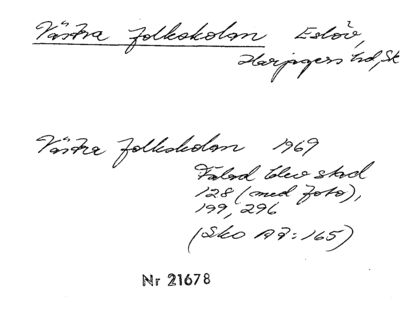 Västra folkskolan Eslöv,
Harjagers hd, Sk
Västra folkskolan 1969
Falad blev stad
128 (med foto),
199, 296
(Sko A2:165)
Nr 21678